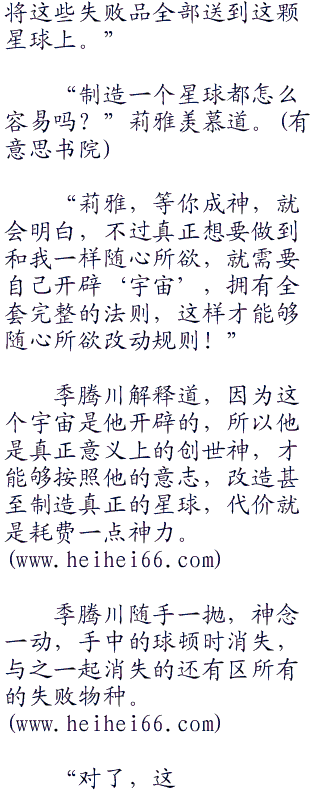 将这些失败品全部送到这颗
星球上。”
“制造一个星球都怎么
容易吗？”莉雅羡慕道。(有
意思书院)
“莉雅，等你成神，就
会明白，不过真正想要做到
和我一样随心所欲，就需要
自己开辟‘宇宙’，拥有全
套完整的法则，这样才能够
随心所欲改动规则！”
季腾川解释道，因为这
个宇宙是他开辟的，所以他
是真正意义上的创世神，才
能够按照他的意志，改造甚
至制造真正的星球，代价就
是耗费一点神力。
(www.heihei66.com)
季腾川随手一抛，神念
一动，手中的球顿时消失，
与之一起消失的还有区所有
的失败物种。
(www.heihei66.com)
“对了，这